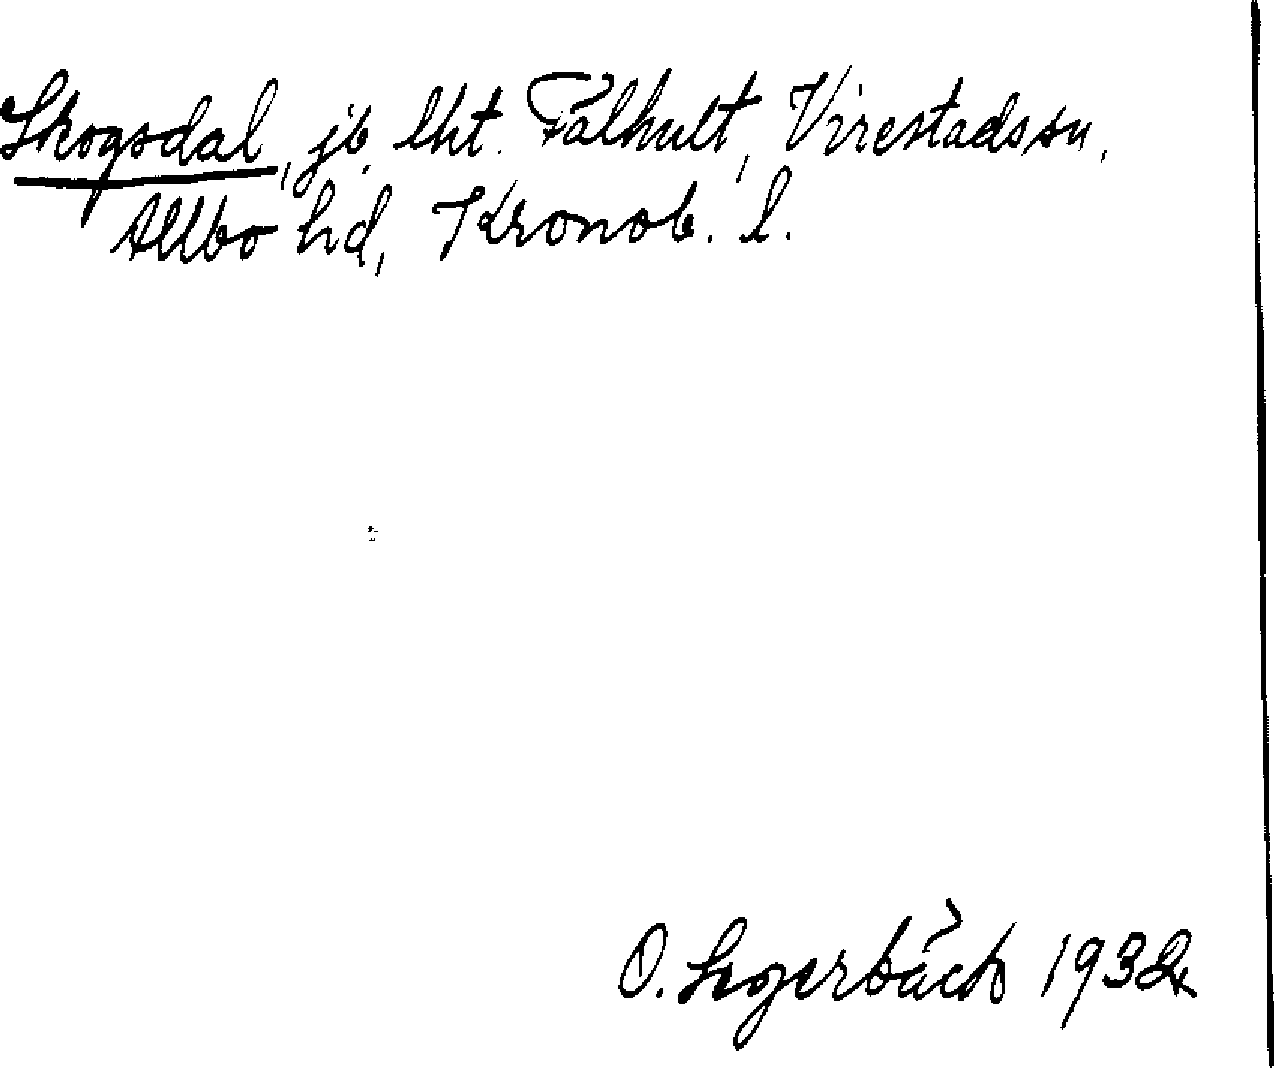 Skogsdal, jb. lht. Fälhult, Virestads sn,
Allbo hd, Kronob. l.
O. Segerbäck 1932